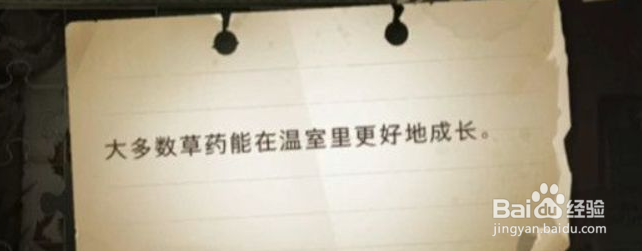 大多数草药能在温室里更好地成长。
Baidu经验
jingyan.baidu.com